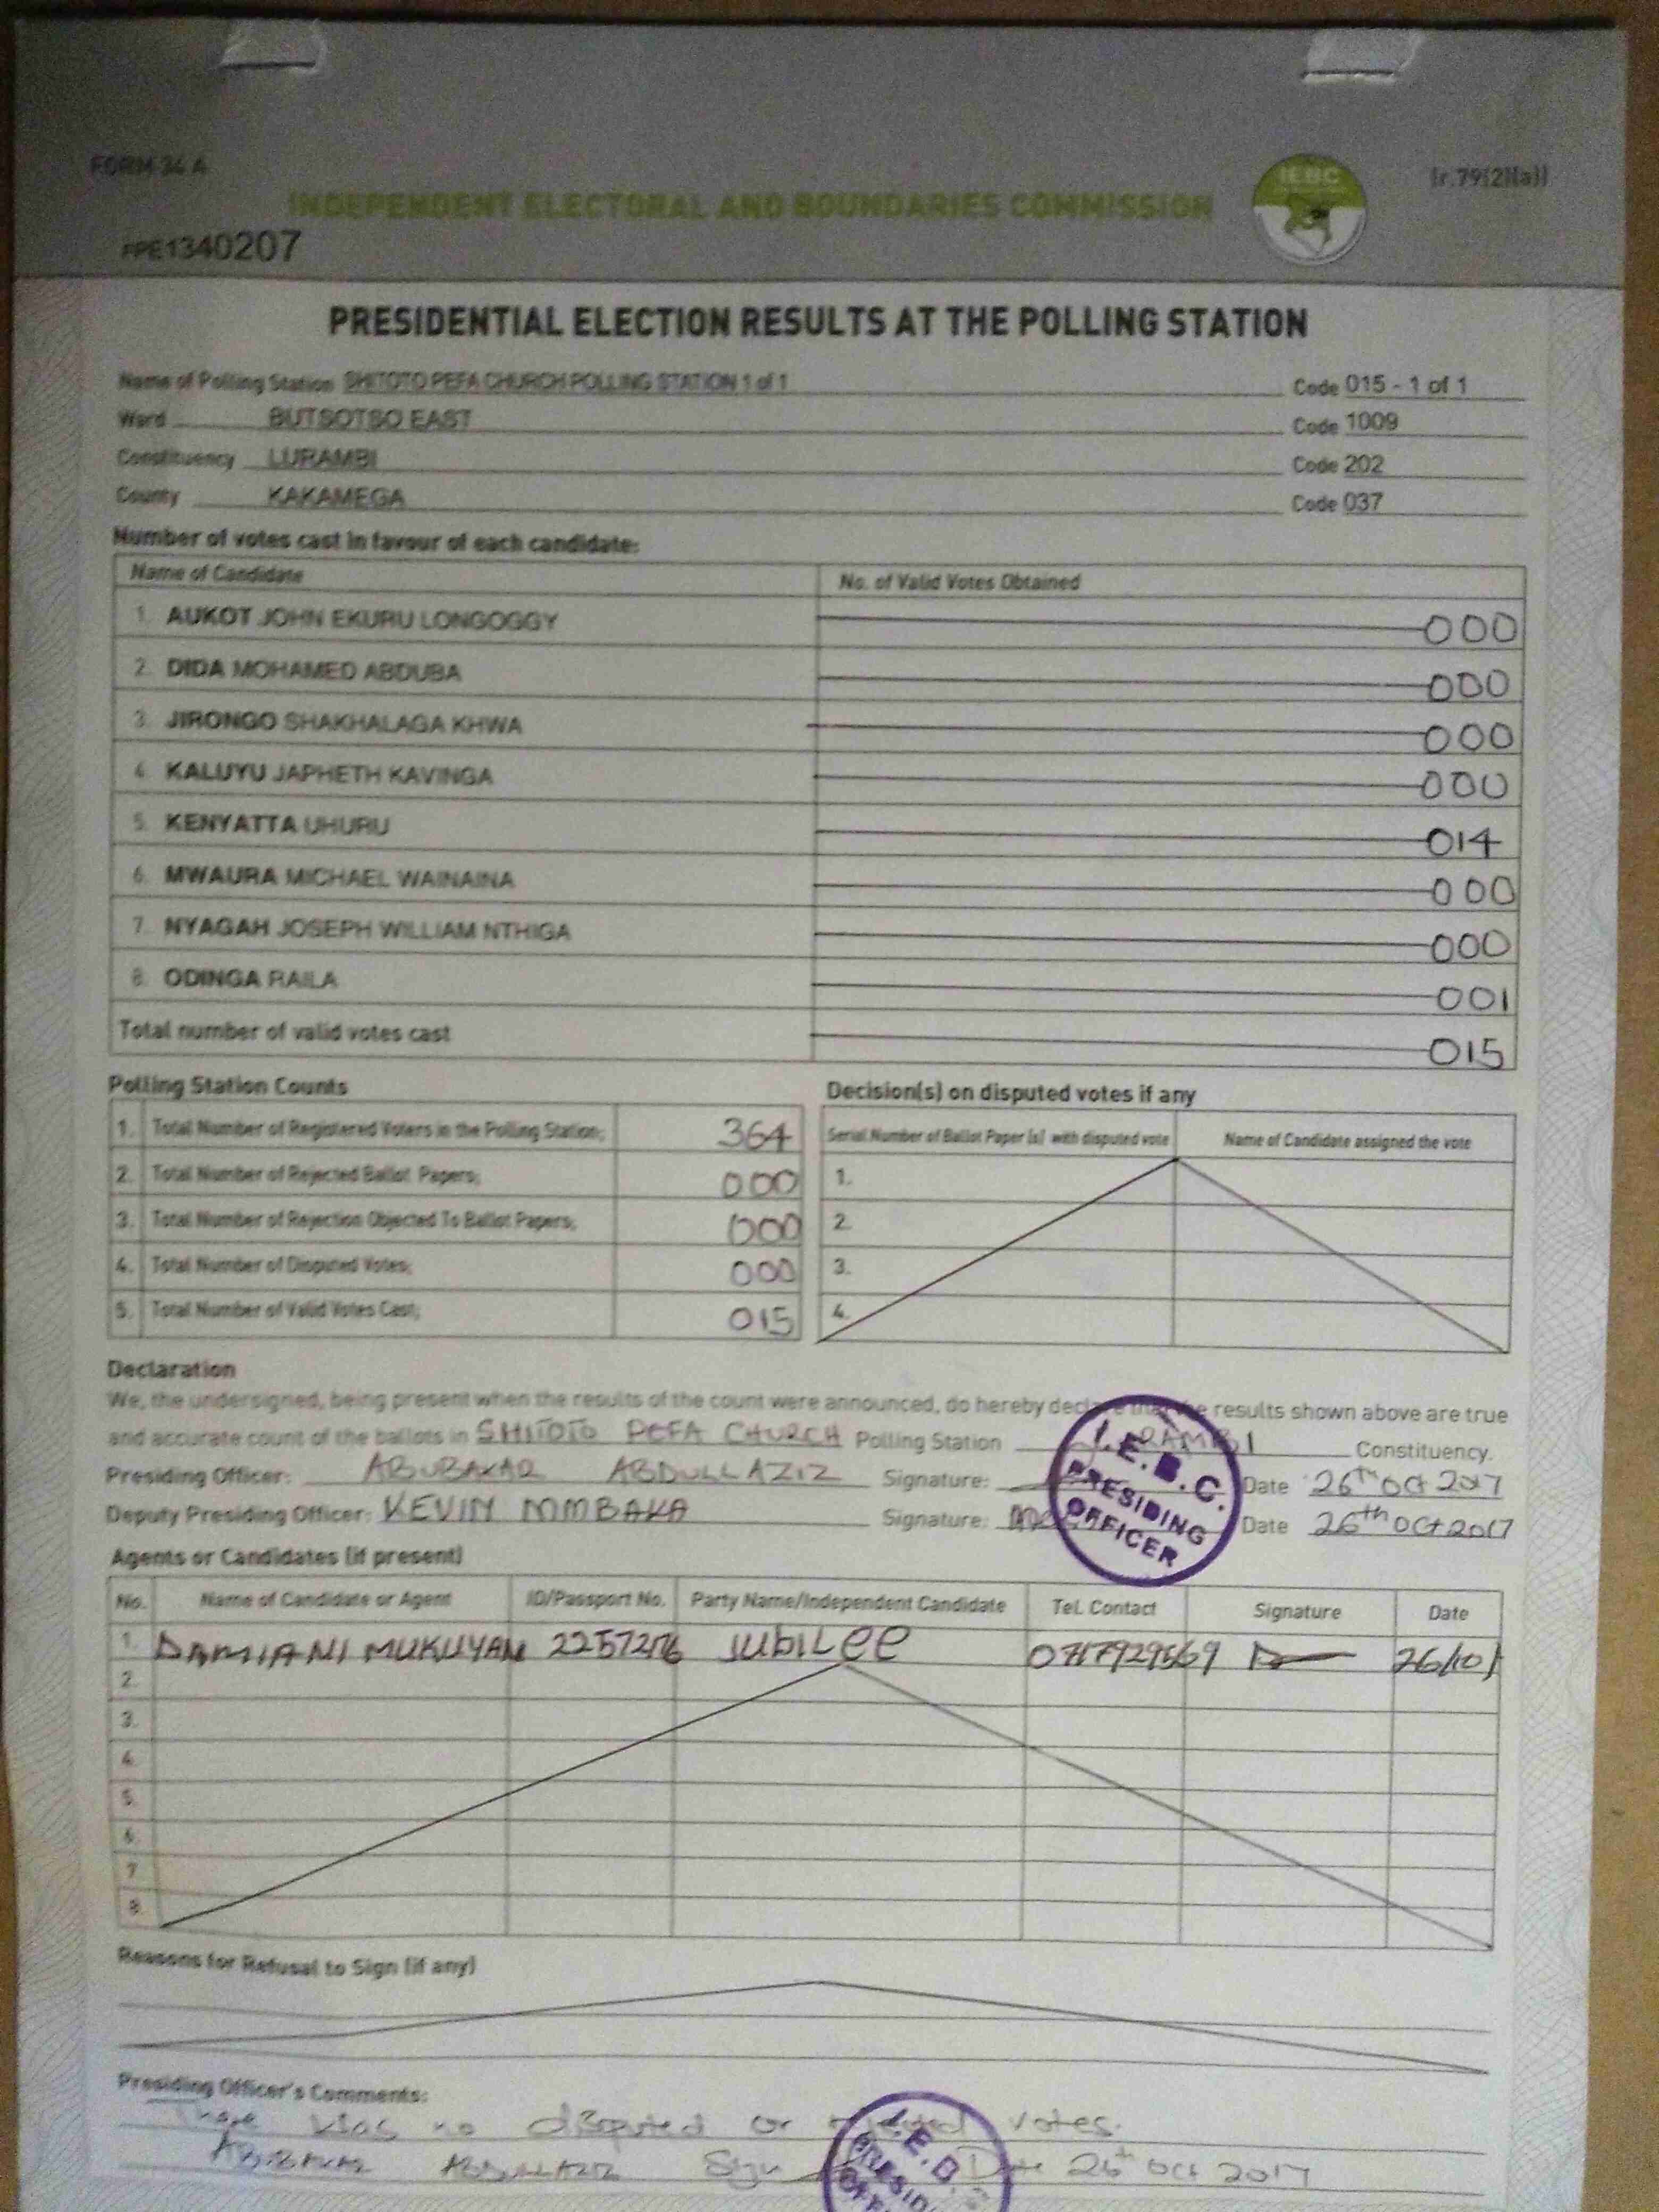 FORM 34 A
(r.79(2)(a))
INDEPENDENT ELECTORAL AND BOUNDARIES COMMISSION
IEBC
FPE1340207
PRESIDENTIAL ELECTION RESULTS AT THE POLLING STATION
Name of Polling Station SHITOTO PEFA CHURCH POLLING STATION 1 of 1 Code 015 - 1 of 1
Ward BUTSOTSO EAST Code 1009
Constituency LURAMBI Code 202
County KAKAMEGA Code 037
Number of votes cast in favour of each candidate:
Name of Candidate No. of Valid Votes Obtained
1. AUKOT JOHN EKURU LONGOGGY 000
2. DIDA MOHAMED ABDUBA 000
3. JIRONGO SHAKHALAGA KHWA 000
4. KALUYU JAPHETH KAVINGA 000
5. KENYATTA UHURU 014
6. MWAURA MICHAEL WAINAINA 000
7. NYAGAH JOSEPH WILLIAM NTHIGA 000
8. ODINGA RAILA 001
Total number of valid votes cast 015
Polling Station Counts
1. Total Number of Registered Voters in the Polling Station; 364
2. Total Number of Rejected Ballot Papers; 000
3. Total Number of Rejection Objected To Ballot Papers; 000
4. Total Number of Disputed Votes; 000
5. Total Number of Valid Votes Cast; 015
Decision(s) on disputed votes if any
Serial Number of Ballot Paper (s) with disputed vote Name of Candidate assigned the vote
1.
2.
3.
4.
Declaration
We, the undersigned, being present when the results of the count were announced, do hereby declare that the results shown above are true
and accurate count of the ballots in SHITOTO PEFA CHURCH Polling Station LURAMBI Constituency.
Presiding Officer: ABUBAKAR ABDULLAZIZ Signature: Date 26th Oct 2017
Deputy Presiding Officer: KEVIN MMBAKA Signature: Date 26th Oct 2017
I.E.B.C.
PRESIDING
OFFICER
Agents or Candidates (if present)
No. Name of Candidate or Agent ID/Passport No. Party Name/Independent Candidate Tel. Contact Signature Date
1. DAMIANI MUKUYAN JUBILEE 26/10/
2.
3.
4.
5.
6.
7.
8.
Reasons for Refusal to Sign (if any)
Presiding Officer's Comments:
There was no disputed or rejected votes.
ABUBAKAR ABDULLAZIZ Sign Date 26th Oct 2017
I.E.B.C
PRESIDING